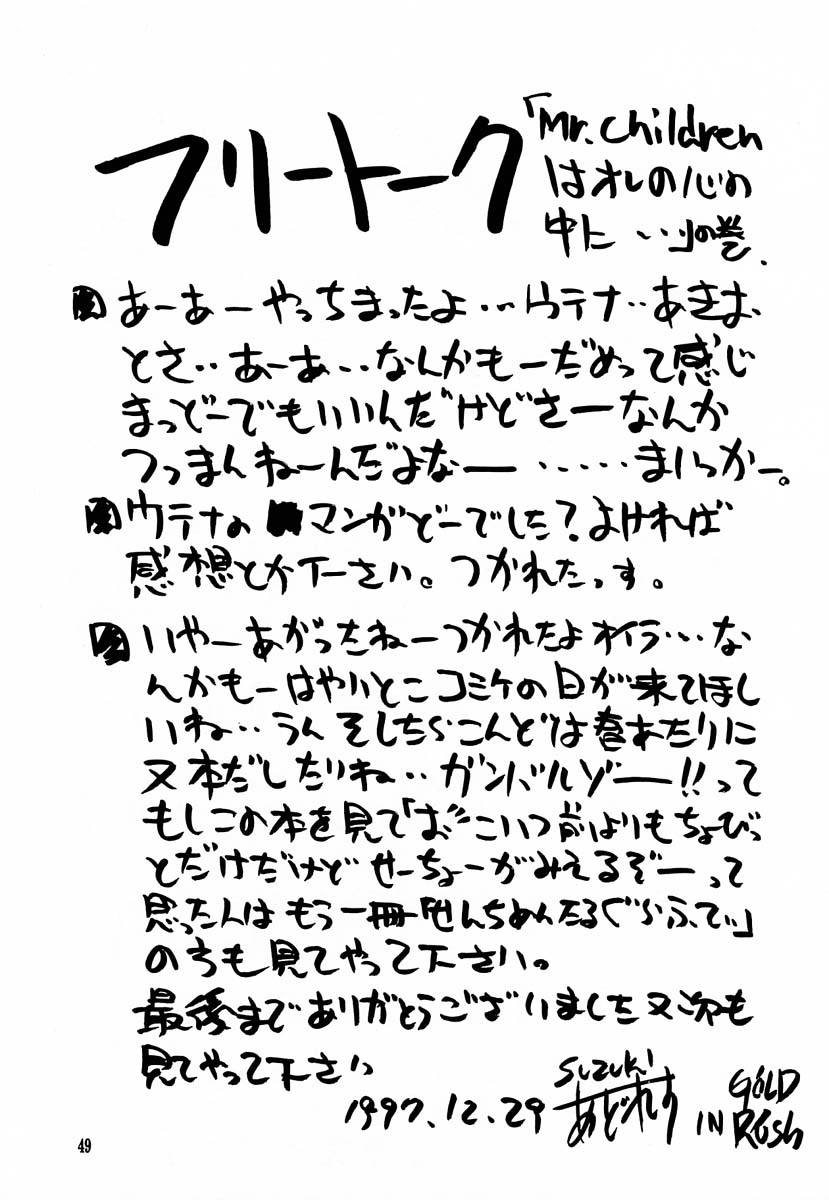 フリートーク
「Mr.Children
はオレの心の
中に・・」の巻.
あーあーやっちまったよ・・・ウテナ・・あきお
とさ・・あーあ・・なんかもーだめって感じ
まっどーでもいいんだけどさーなんか
つっまんねーんだよなー・・・・・まいっかー。
ウテナの マンガどーでした?よければ
感想とか下ーさい。つかれたっす。
いやーあがったねーつかれたよオイラ・・・な
んかもーはやいとこコミケの日が来てほし
いね・・うん そしたらこんどは春あたりに
又本だしたりね・・ガンバルゾー!!って
もしこの本を見て「おっこいつ前よりもちょびっ
とだけだけど せーちょーがみえるぞーって
思った人は もう一冊「せんちめんたるぐらふてぃ」
のちも見てやって下さい。
最後までありがとうございました又次も
見てやって下さい
1997.12.29
suzuki
あどれす
GOLD
IN RUSh
49